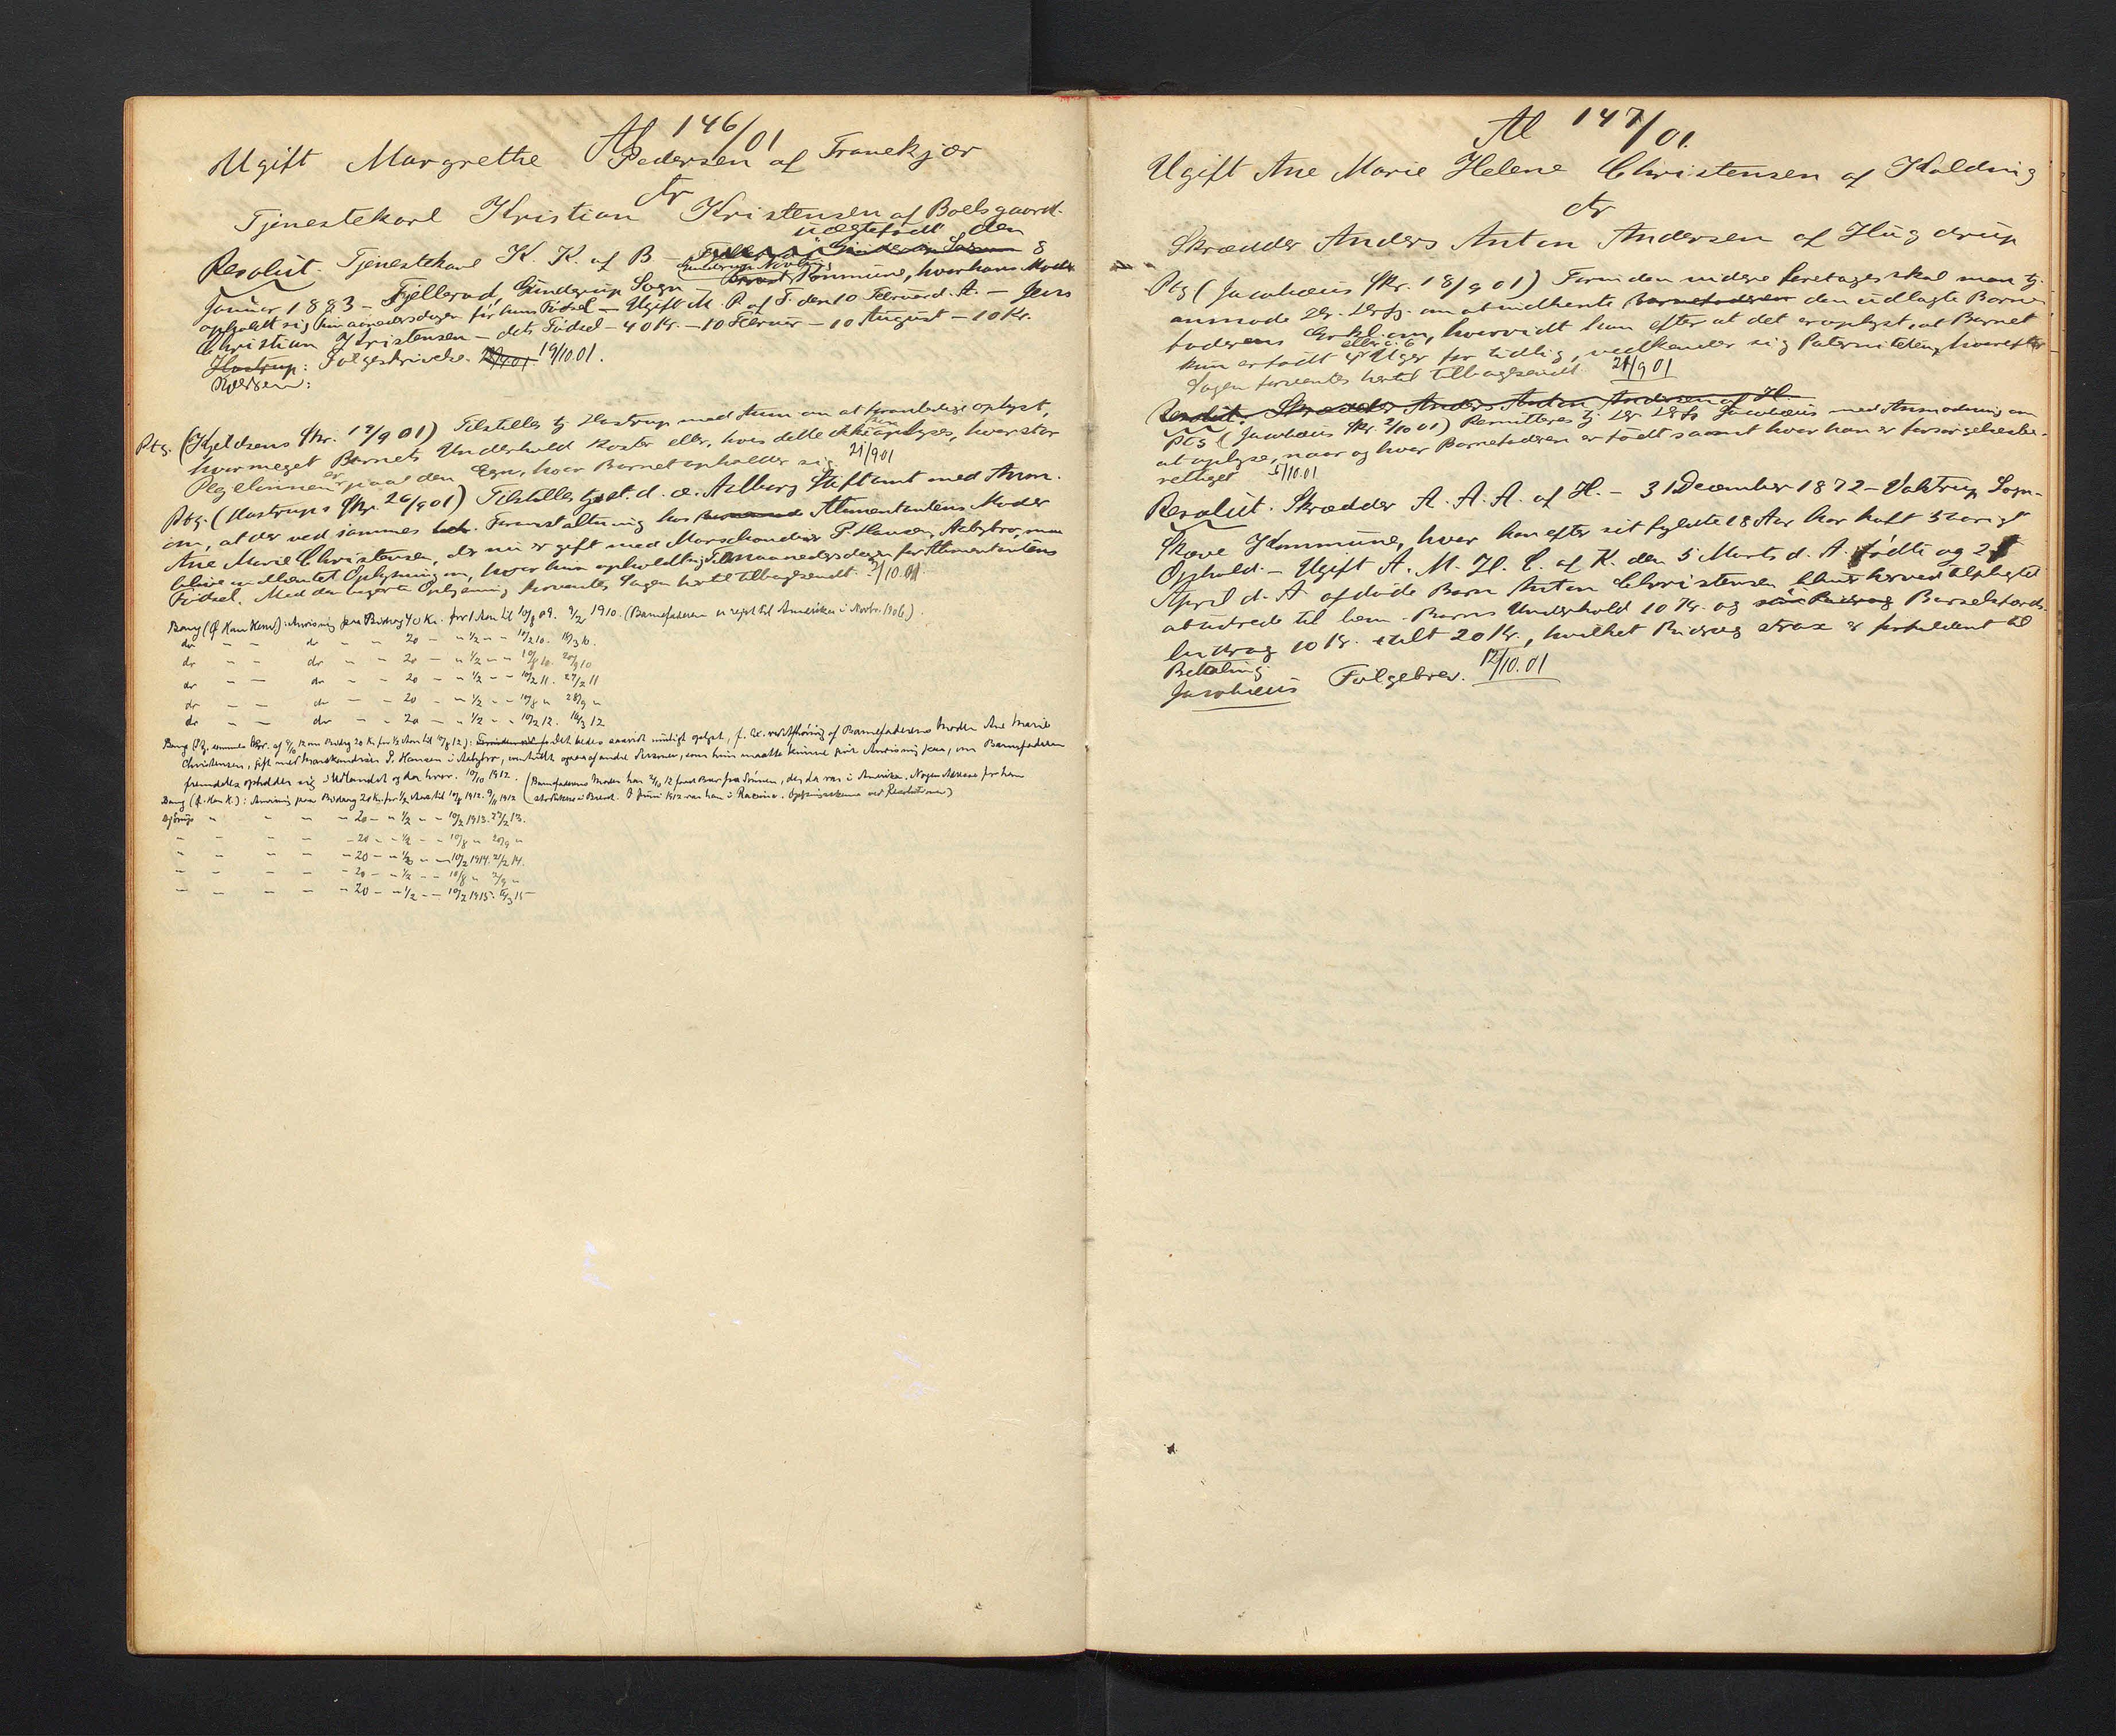 Al 146/01
Ugift Margrethe Pedersen af Tranekjær
ctr
Tjenestekarl Kristian Kristensen af Boelsgaard.
uægtefødt den
Resolut. Tjenestekarl K. K. af B. – 8
Gunderup-Nøvling
Januar 1883 – Fjellerad, Gunderup Sogn – Kommune, hvor hans Moder
opholdt sig timaanedersdagen før hans Fødsel – Ugift M. P. af T. den 10 Februar d. A. – Jens
Christian Kristensen – dets Fødsel – 40 Kr. – 10 Februar – 10 August – 10 Kr.
Hastrup: Følgeskrivelse. 19/10 01.
Ptg. (Kjeldsens Skr. 19/9 01) Tilstilles tj. Hastrup med Anm. om at foranledige oplyst,
hvor meget Barnets Underhold koster eller, hvis dette ikke kan oplyses, hvor stor
Plejelønnen er paa den Egn, hvor Barnet opholder sig 21/9 01
Ptg. (Hastrups Skr. 26/9 01) Tilstilles tj. Aalborg Stiftamt med Anm.
om, at der ved sammes Foranstaltning hos Alimentantens Moder
Ane Marie Christensen, der nu er gift med Marschandiser P. Hansen, Aabybro, maa
blive indhentet Oplysning om, hvor hun opholdt sig timaanedersdagen før Alimentantens
Fødsel. Med den begærte Oplysning forventes Sagen hertil tilbagesendt. 2/10 01.
Bang: Anvisning paa Bidrag 40 Kr. for 1 Aar til 10/8 09. 9/2 1910. (Barnefaderen er rejst til Amerika i Novbr. 1906).
do – – do – – 20 – – 1/2 – – 10/2 10. 16/3 10.
do – – do – – 20 – – 1/2 – – 10/8 10. 20/9 10
do – – do – – 20 – – 1/2 – – 10/2 11. 27/2 11
do – – do – – 20 – – 1/2 – – 10/8 " 28/9 "
do – – do – – 20 – – 1/2 – – 10/2 12. 16/3 12
Bang (Ptg. sammes Skr. af 8/10 12 om Bidrag 20 Kr. for 1/2 Aar til 10/8 12): det bedes saavidt muligt oplyst, f. Ex. ved Afhøring af Barnefaderens Moder Ane Marie
Christensen, gift med Marskandiser P. Hansen i Aabybro, om Barnefaderen
fremdeles opholder sig i Udlandet og da hvor. 10/10 1912. (Barnefaderens Moder har faaet Brev fra Sønnen, der da var i Amerika. Nogen Adresse for ham
Bang: Anvisning paa Bidrag 20 Kr. for 1/2 Aar til 10/8 1912. 9/11 1912 I Juni 1912 var han i Racine.
– – – – 20 – – 1/2 – – 10/2 1913. 27/2 13.
– – – – 20 – – 1/2 – – 10/8 " 20/9 "
– – – – 20 – – 1/2 – – 10/2 1914. 21/2 14.
– – – – 20 – – 1/2 – – 10/8 " 2/9 "
– – – – 20 – – 1/2 – – 10/2 1915. 6/3 15
Al 147/01.
Ugift Ane Marie Helene Christensen af Kolding
ctr
Skrædder Anders Anton Andersen af Hugdrup
Ptg (Jacobæus Skr. 18/9 01) Før den videre foretages skal man tj.
anmode Dr. om at indhente den udlagte Barne-
faderens Erkl. om, hvorvidt han efter at det er oplyst, at Barnet
eller c. 6
kun er født 4 Uger for tidlig, vedkender sig Paterniteten, hvorefter
Sagen forventes hertil tilbagesendt. 21/9 01
Resolut. Skrædder Anders Anton Andersen af H.
Ptg (Jacobæus Skr. 2/10 01) Remitteres tj. Jacobæus med Anmodning om
at oplyse, naar og hvor Barnefaderen er født samt hvor han er forsørgelsesbe-
rettiget 5/10 01
Resolut. Skrædder A. A. A. af H. – 31 December 1872 – Vaktrup Sogn –
Skæve Kommune, hvor han efter sit fyldte 18 Aar har haft 5 aarigt
Ophold. – Ugift A. M. H. C. af K. den 5 Marts d. A. fødte og 25
April d. A. afdøde Barn Anton Christensen herved tilpligtet
at udrede til bem. Barns Underhold 10 Kr. og Barselsfærds-
bidrag 10 Kr. ialt 20 Kr., hvilket Bidrag strax er forfaldent til
Betaling
Jacobæus Følgebrev. 12/10.01